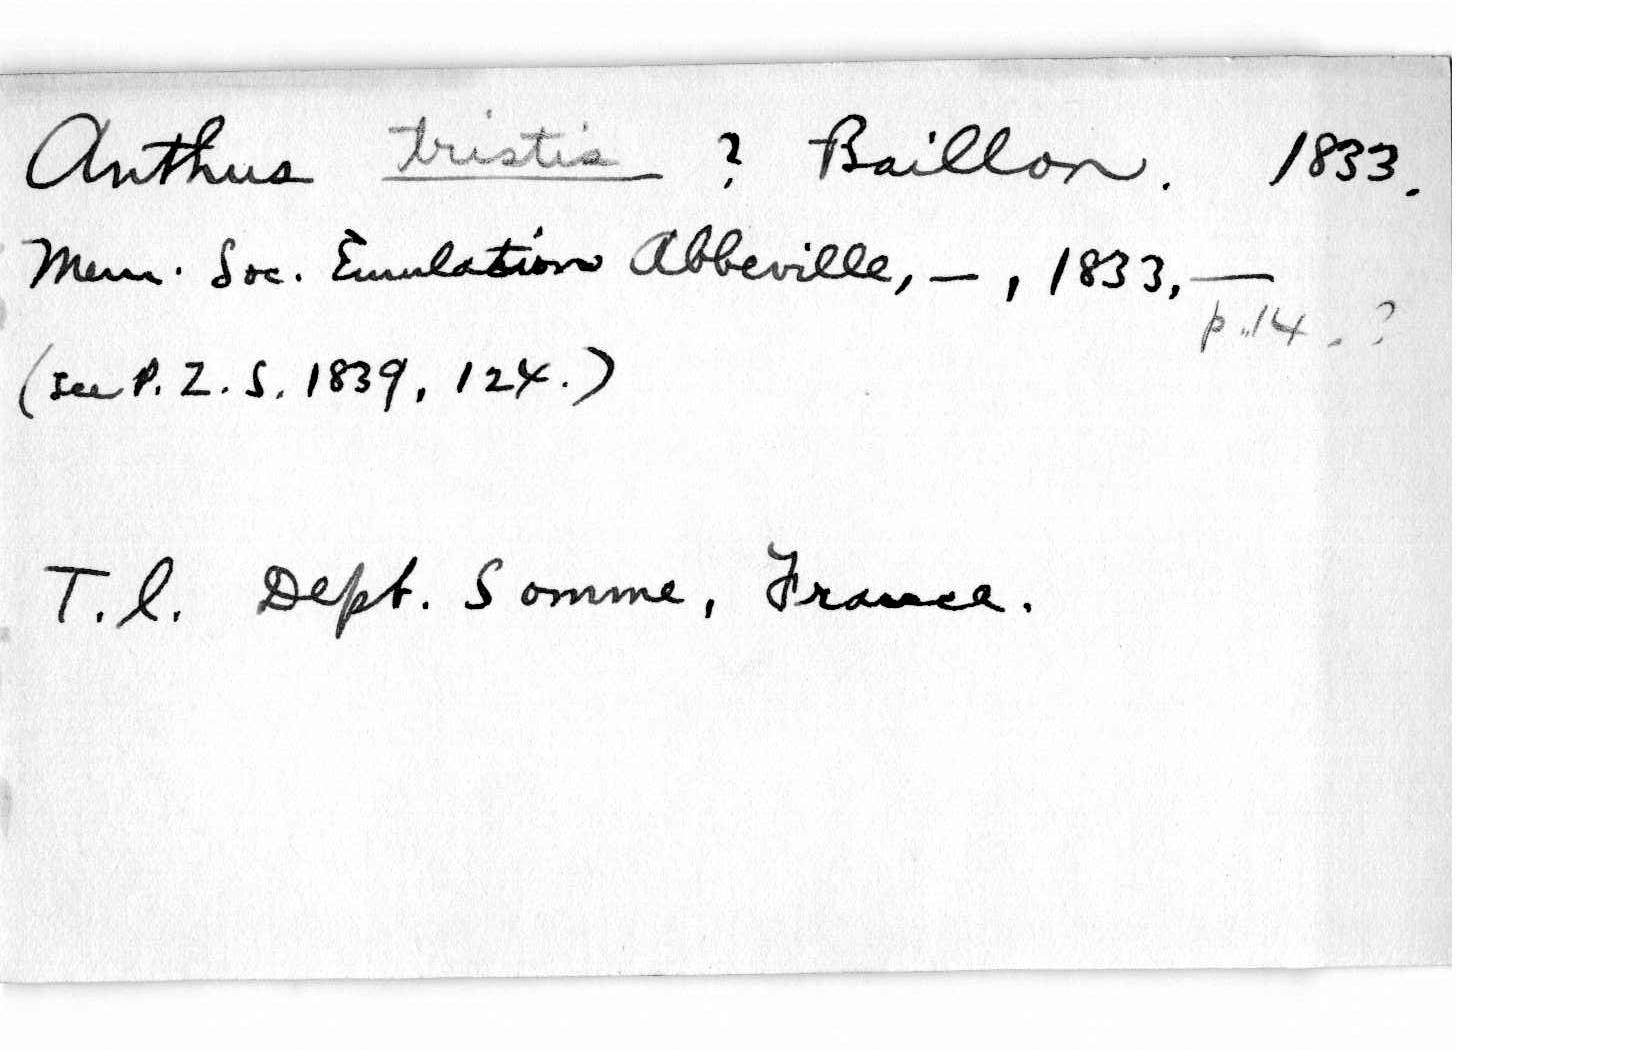 Anthus tristis ? Baillon. 1833.
Mem. Soc. Emulation Abbeville, — , 1833, —
p. 14. ?
(see P. Z. S. 1839, 124.)
T. l. Dept. Somme, France.